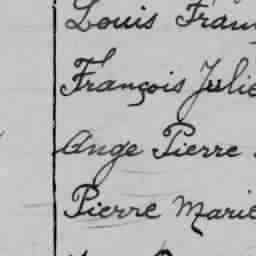 Louis Fran
François Julie
Ange Pierre
Pierre Marie